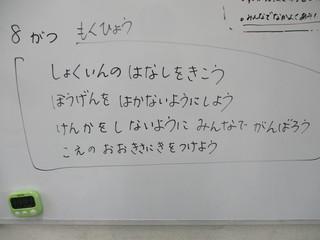 みんなでなかよくあそ
8 がつ もくひょう
しょくいんの はなしをきこう
ぼうげんを はかないようにしよう
けんかをしないように みんなで がんばろう
こえの おおきさにきをつけよう